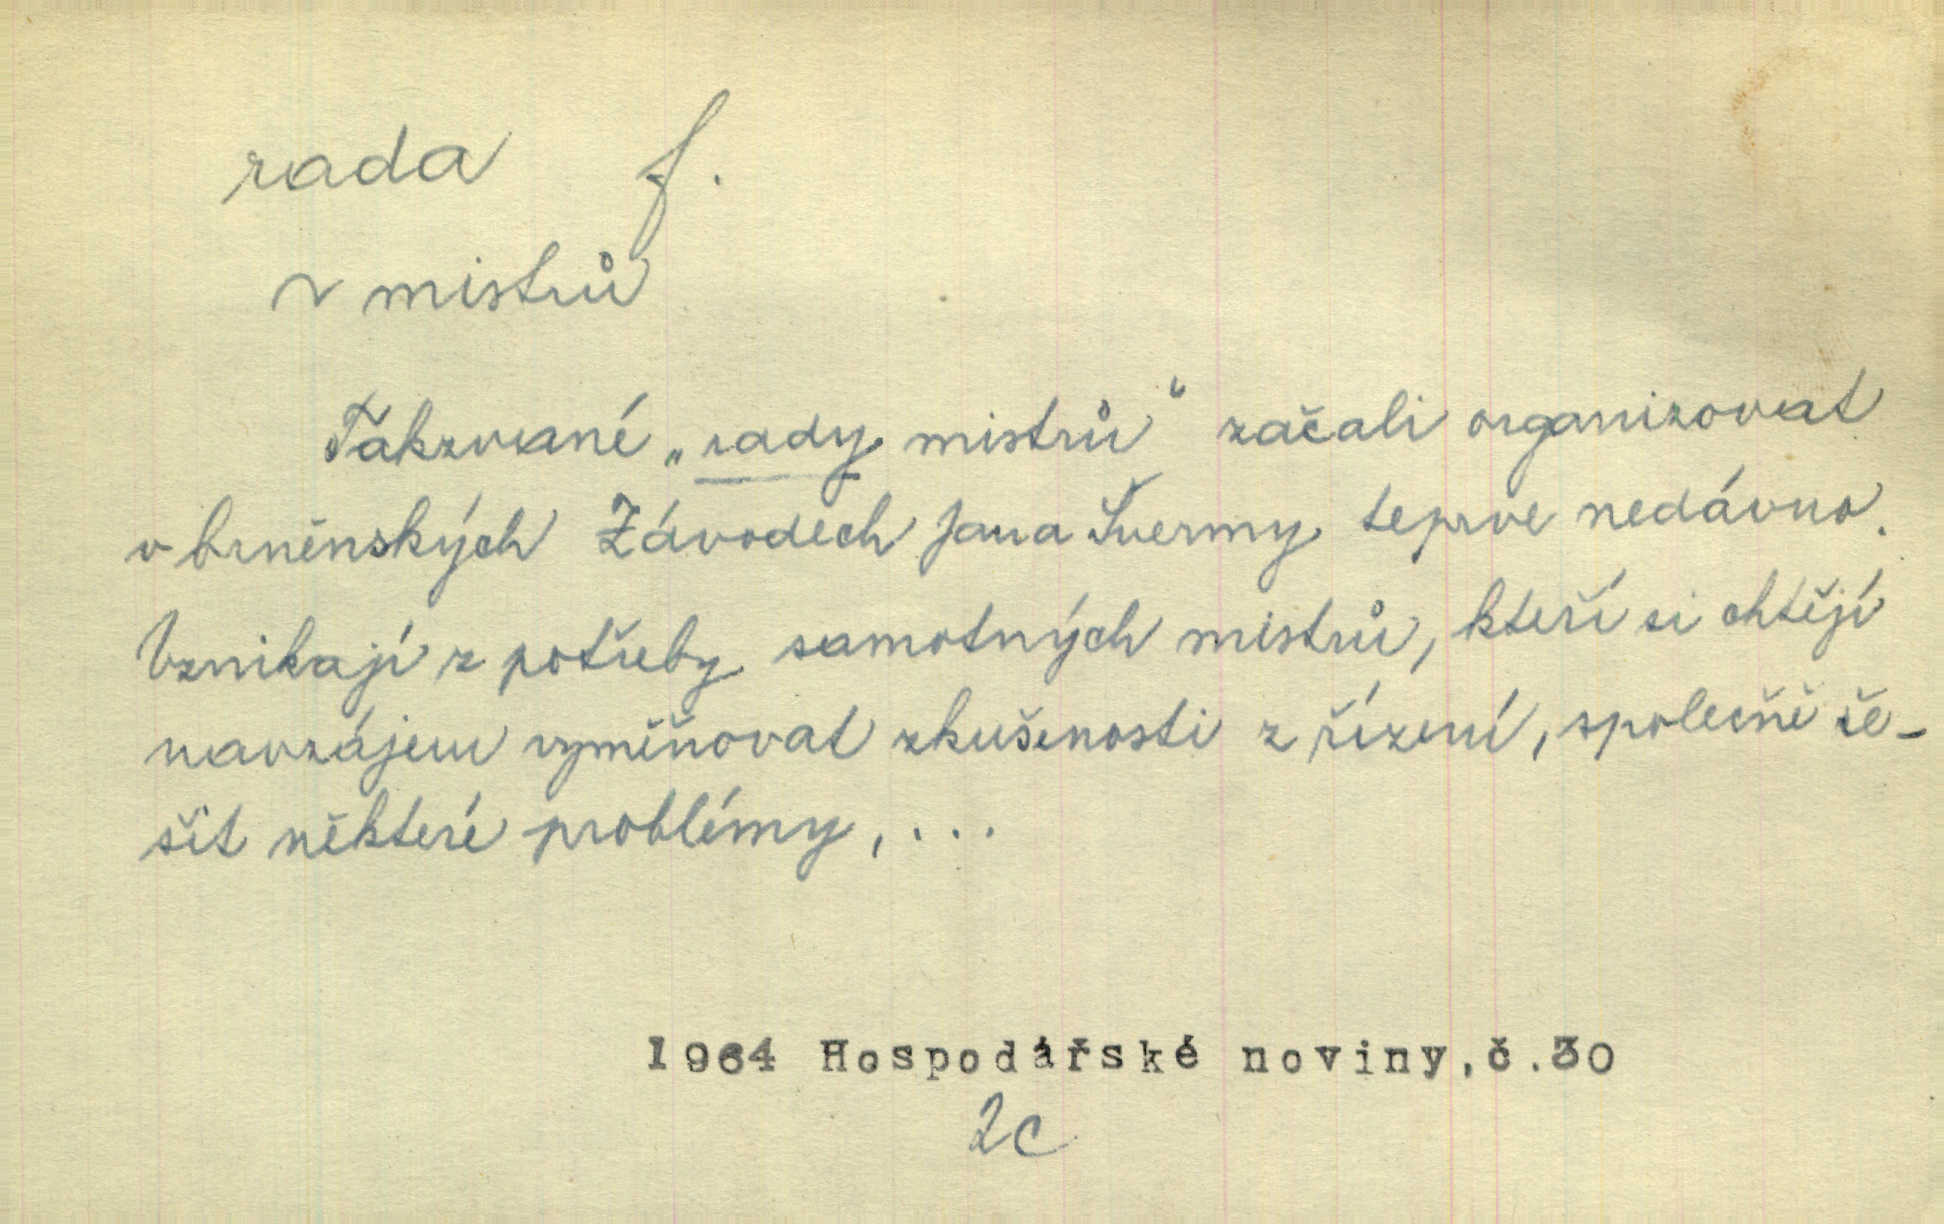 rada f.
~ mistrů
Takzvané „rady mistrů“ začali organizovat
v brněnských Závodech Jana Švermy teprve nedávno.
Vznikají z potřeby samotných mistrů, kteří si chtějí
navzájem vyměňovat zkušenosti z řízení, společně ře-
šit některé problémy, ...
1964 Hospodářské noviny, č.30
2c